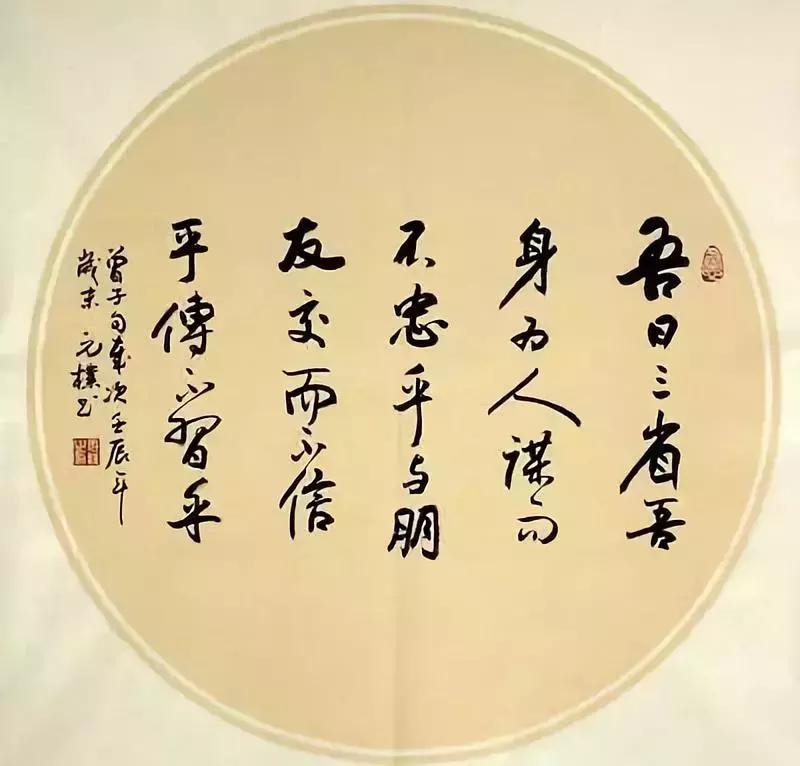 吾日三省吾
身为人謀而
不忠乎与朋
友交而不信
乎傳不習乎
曾子句歲次壬辰年
歲末 元樸书